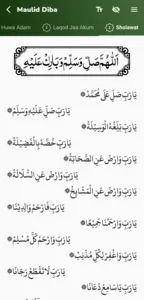 Maulid Diba
Huwa Adam
2 Laqod Jaa Akum
1 Sholawat
اَللّٰهُمَّ صَلِّ وَسَلِّمْ وَبَارِكْ عَلَيْهِ
يَا رَبِّ صَلِّ عَلَى مُحَمَّدْ
يَا رَبِّ صَلِّ عَلَيْهِ وَسَلِّمْ
يَا رَبِّ بَلِّغْهُ الْوَسِيْلَةْ
يَا رَبِّ خُصَّهُ بِالْفَضِيْلَةْ
يَا رَبِّ وَارْضَ عَنِ الصَّحَابَةْ
يَا رَبِّ وَارْضَ عَنِ السُّلَالَةْ
يَا رَبِّ وَارْضَ عَنِ الْمَشَايِخْ
يَا رَبِّ فَارْحَمْ وَالِدِيْنَا
يَا رَبِّ وَارْحَمْنَا جَمِيْعًا
يَا رَبِّ وَارْحَمْ كُلَّ مُسْلِمْ
يَا رَبِّ وَاغْفِرْ لِكُلِّ مُذْنِبْ
يَا رَبِّ لَا تَقْطَعْ رَجَانَا
يَا رَبِّ يَا سَامِعْ دُعَانَا